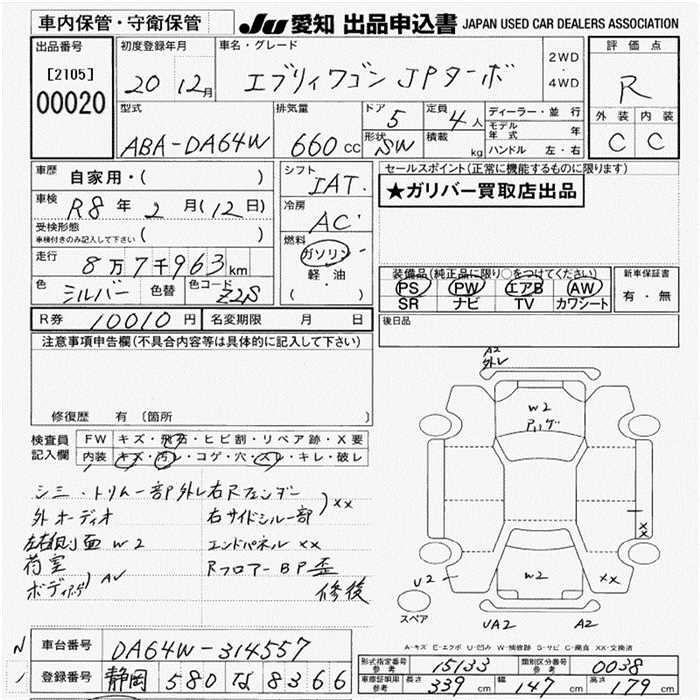 車内保管・守衛保管
JU 愛知 出品申込書 JAPAN USED CAR DEALERS ASSOCIATION
出品番号
[2105]
00020
初度登録年月
20 12月
車名・グレード
エブリィワゴン JPターボ
2WD
・
4WD
評価点
R
外装 内装
C C
型式
ABA-DA64W
排気量
660 CC
ドア
5
形状
SW
定員
4人
積載
kg
ディーラー・並行
モデル年式 年
ハンドル 左・右
車歴
自家用・( )
車検
R8年 2月(12日)
受検形態
車検付きのみ記入して下さい ( )
走行
8万7千963km
色 シルバー 色替 色コード Z2S
シフト
IAT.
冷房
AC
燃料
ガソリン
軽・油
( )
セールスポイント(正常に機能するものに限ります)
★ガリバー買取店出品
装備品(純正品に限り○をつけてください)
PS PW エアB AW
SR ナビ TV カワシート
新車保証書
有・無
後日品
R券 10010円 名変期限 月 日
注意事項申告欄(不具合内容等は具体的に記入して下さい)
修復歴 有 〔箇所
検査員記入欄
FW キズ・飛石・ヒビ割・リペア跡・X要
内装 キズ・汚レ・コゲ・穴・スレ・キレ・破レ
シミ・トリム一部外レ右Rフェンダー
外オーディオ 右サイドシル一部 XX
左右側面 W2 エンドパネル XX
荷室 RフロアーBP歪
AV 修復
A2
外レ
W2
XX
U2
W2
XX
スペア
UA2
A2
A-キズ E-エクボ U-凹み W-補修跡 S-サビ C-腐食 XX-交換済
車台番号 DA64W-314557
登録番号 静岡 580 な 8366
型式指定番号 参考 15133 類別区分番号 参考 0038
車庫証明用 参考 長さ 339 cm 幅 147 cm 高さ 179 cm